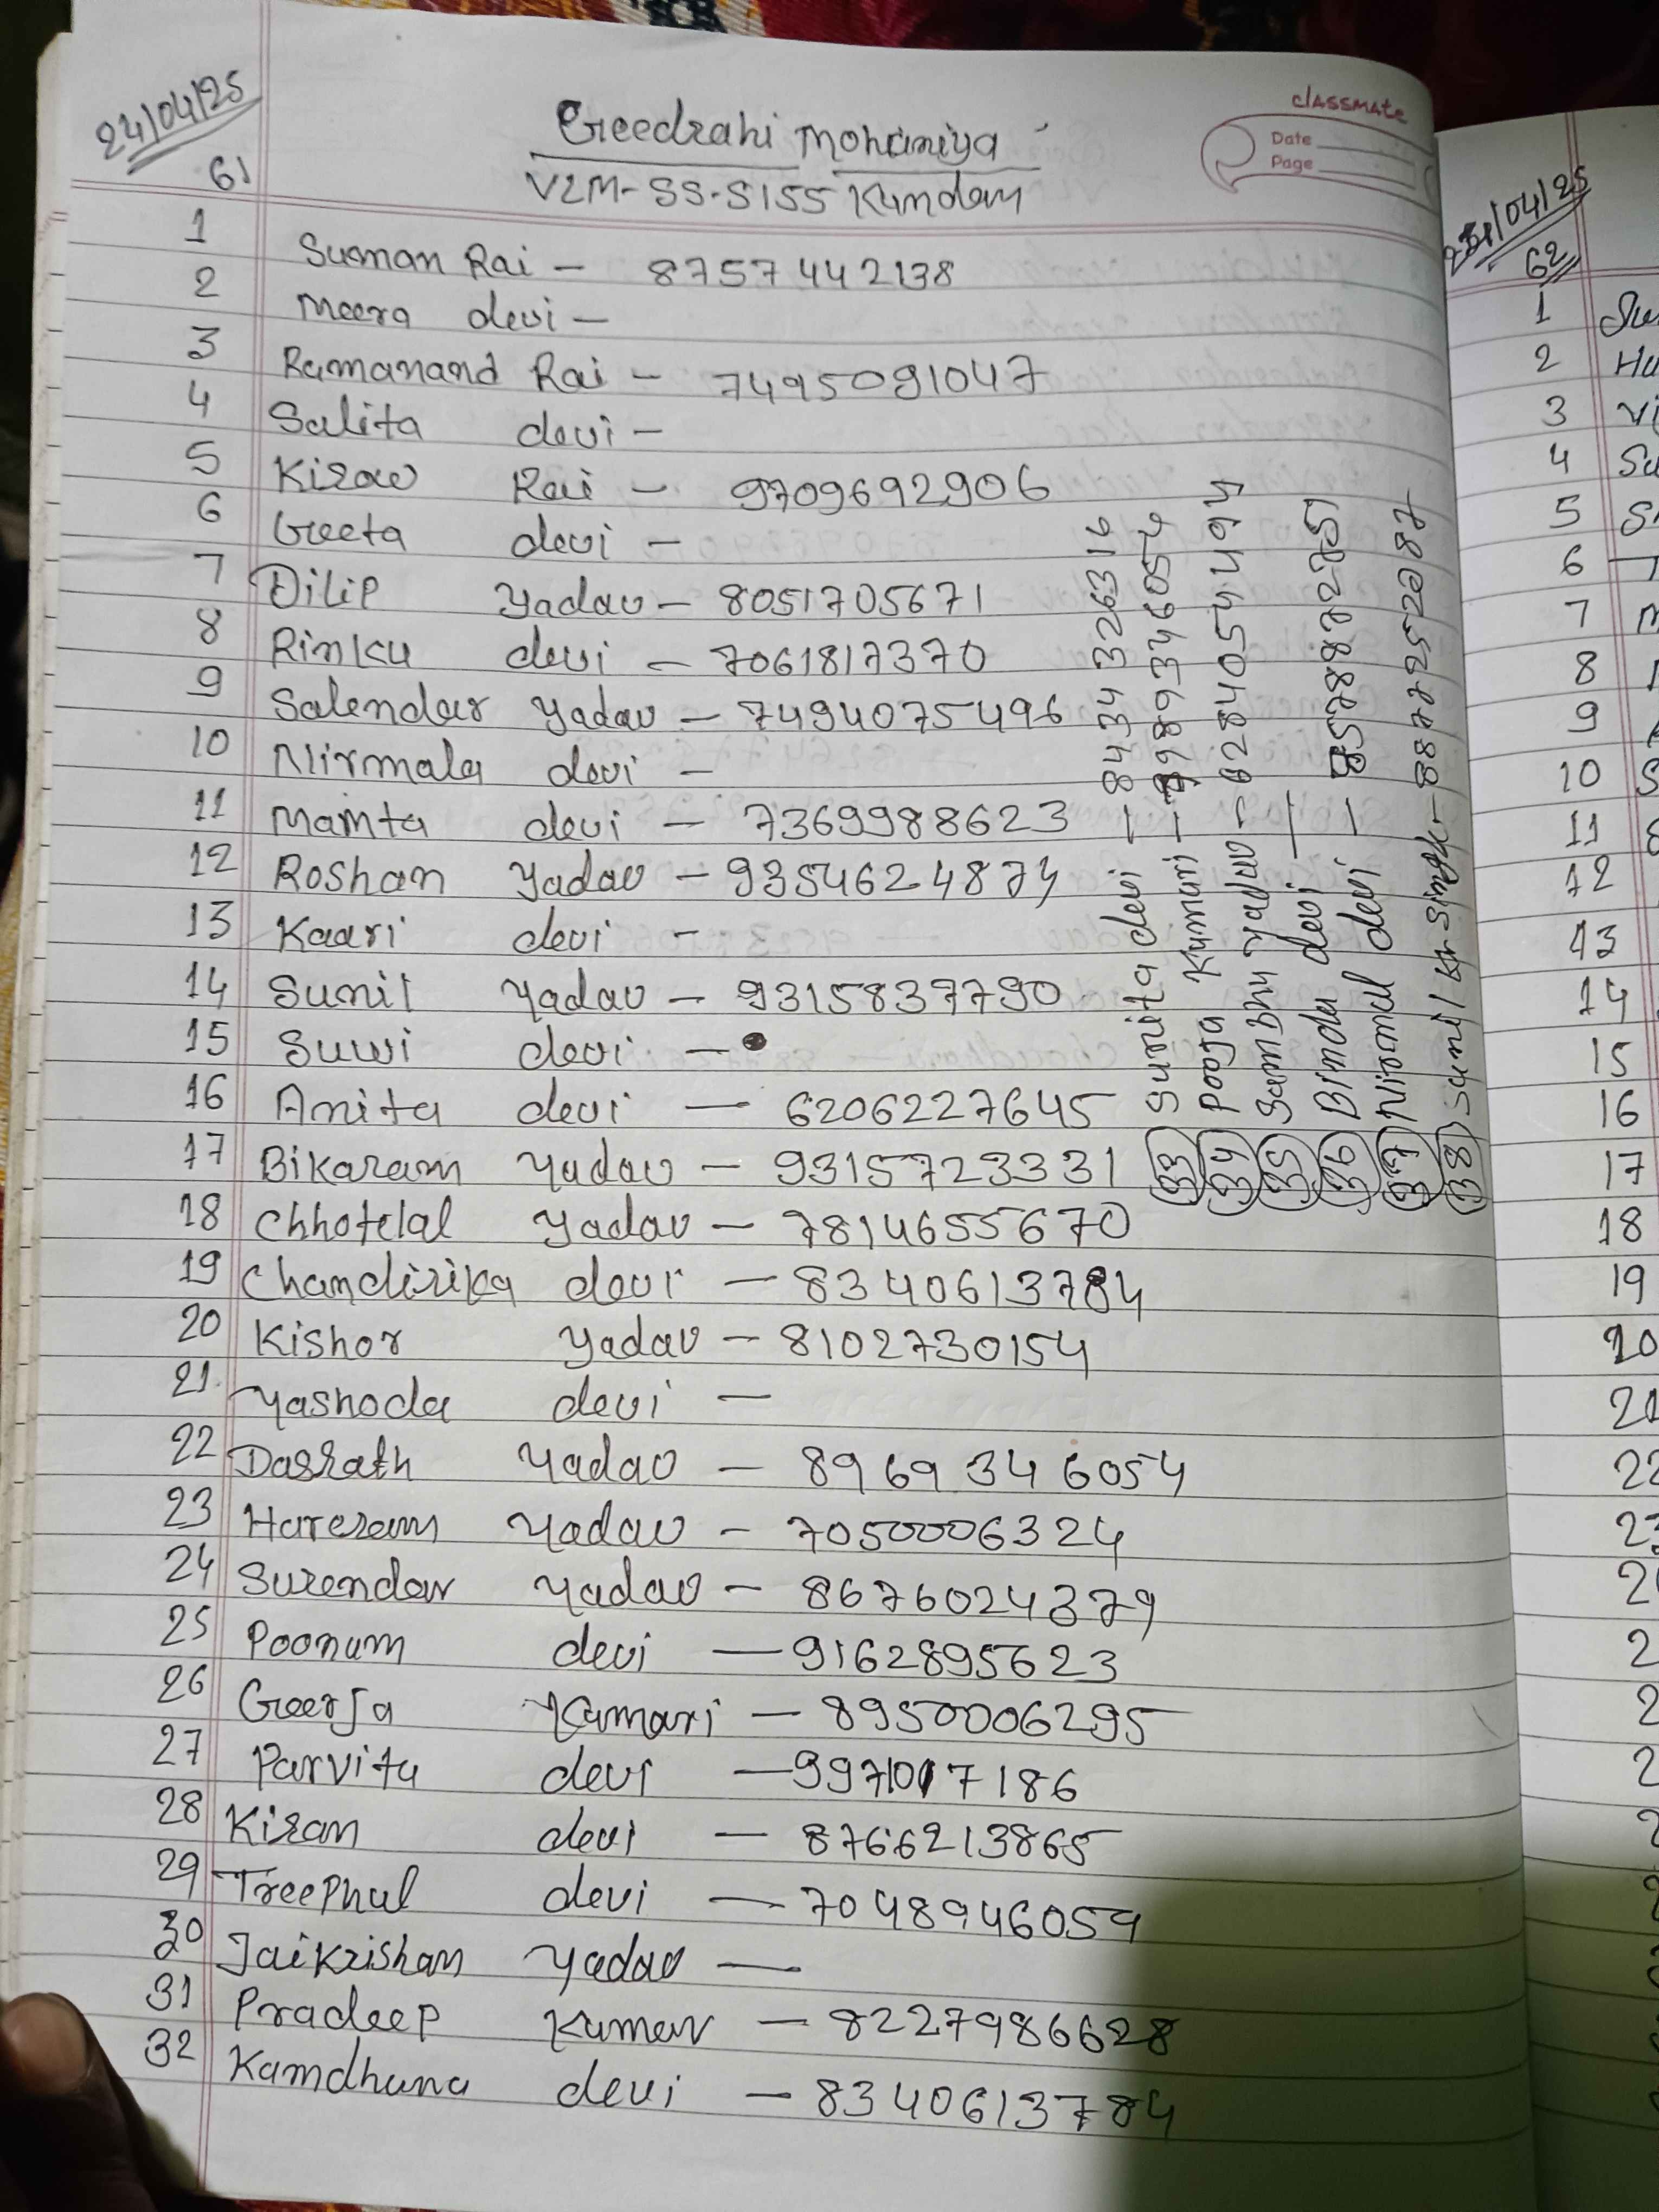 24/04/25
61
Geedrahi Mohaniya
VZM-SS-S155 Kundam
classmate
Date
Page
1 Suman Rai - 8757442138
2 Meera devi -
3 Ramanand Rai - 7495091047
4 Salita devi -
5 Kirao Rai - 9709692906
6 Geeta devi -
7 Dilip Yadav - 8051705671
8 Rinku devi - 7061817370
9 Salendar Yadav - 7494075496
10 Nirmala devi -
11 Mamta devi - 7369988623
12 Roshan Yadav - 9354624874
13 Kaari devi -
14 Sunil Yadav - 9315837790
15 Suwi devi -
16 Anita devi - 6206227645
17 Bikaram Yadav - 9315723331
18 Chhotelal Yadav - 7814655670
19 Chandirika devi - 8340613784
20 Kishor Yadav - 8102730154
21. Yashoda devi -
22 Dasrath Yadav - 8969346054
23 Hareram Yadav - 7050006324
24 Surendar Yadav - 8676024379
25 Poonum devi - 9162895623
26 Geerja Kumari - 8950006295
27 Parvita devi -
28 Kiran devi - 8766213865
29 Treephul devi - 7048946059
30 Jaikrishan Yadav -
31 Pradeep Kumar - 8227986628
32 Kamdhana devi - 8340613784
33 Sunita devi - 8434326316
34 Pooja Kumari -
35 Sambhu Yadav - 6284054494
36 Bindu devi -
37 Nirmal devi -
38 Sunil Kr Singh - 8877252087
/04/25
62
1
2
3
4
5
6
7
8
9
10
11
12
13
14
15
16
17
18
19
20
21
22